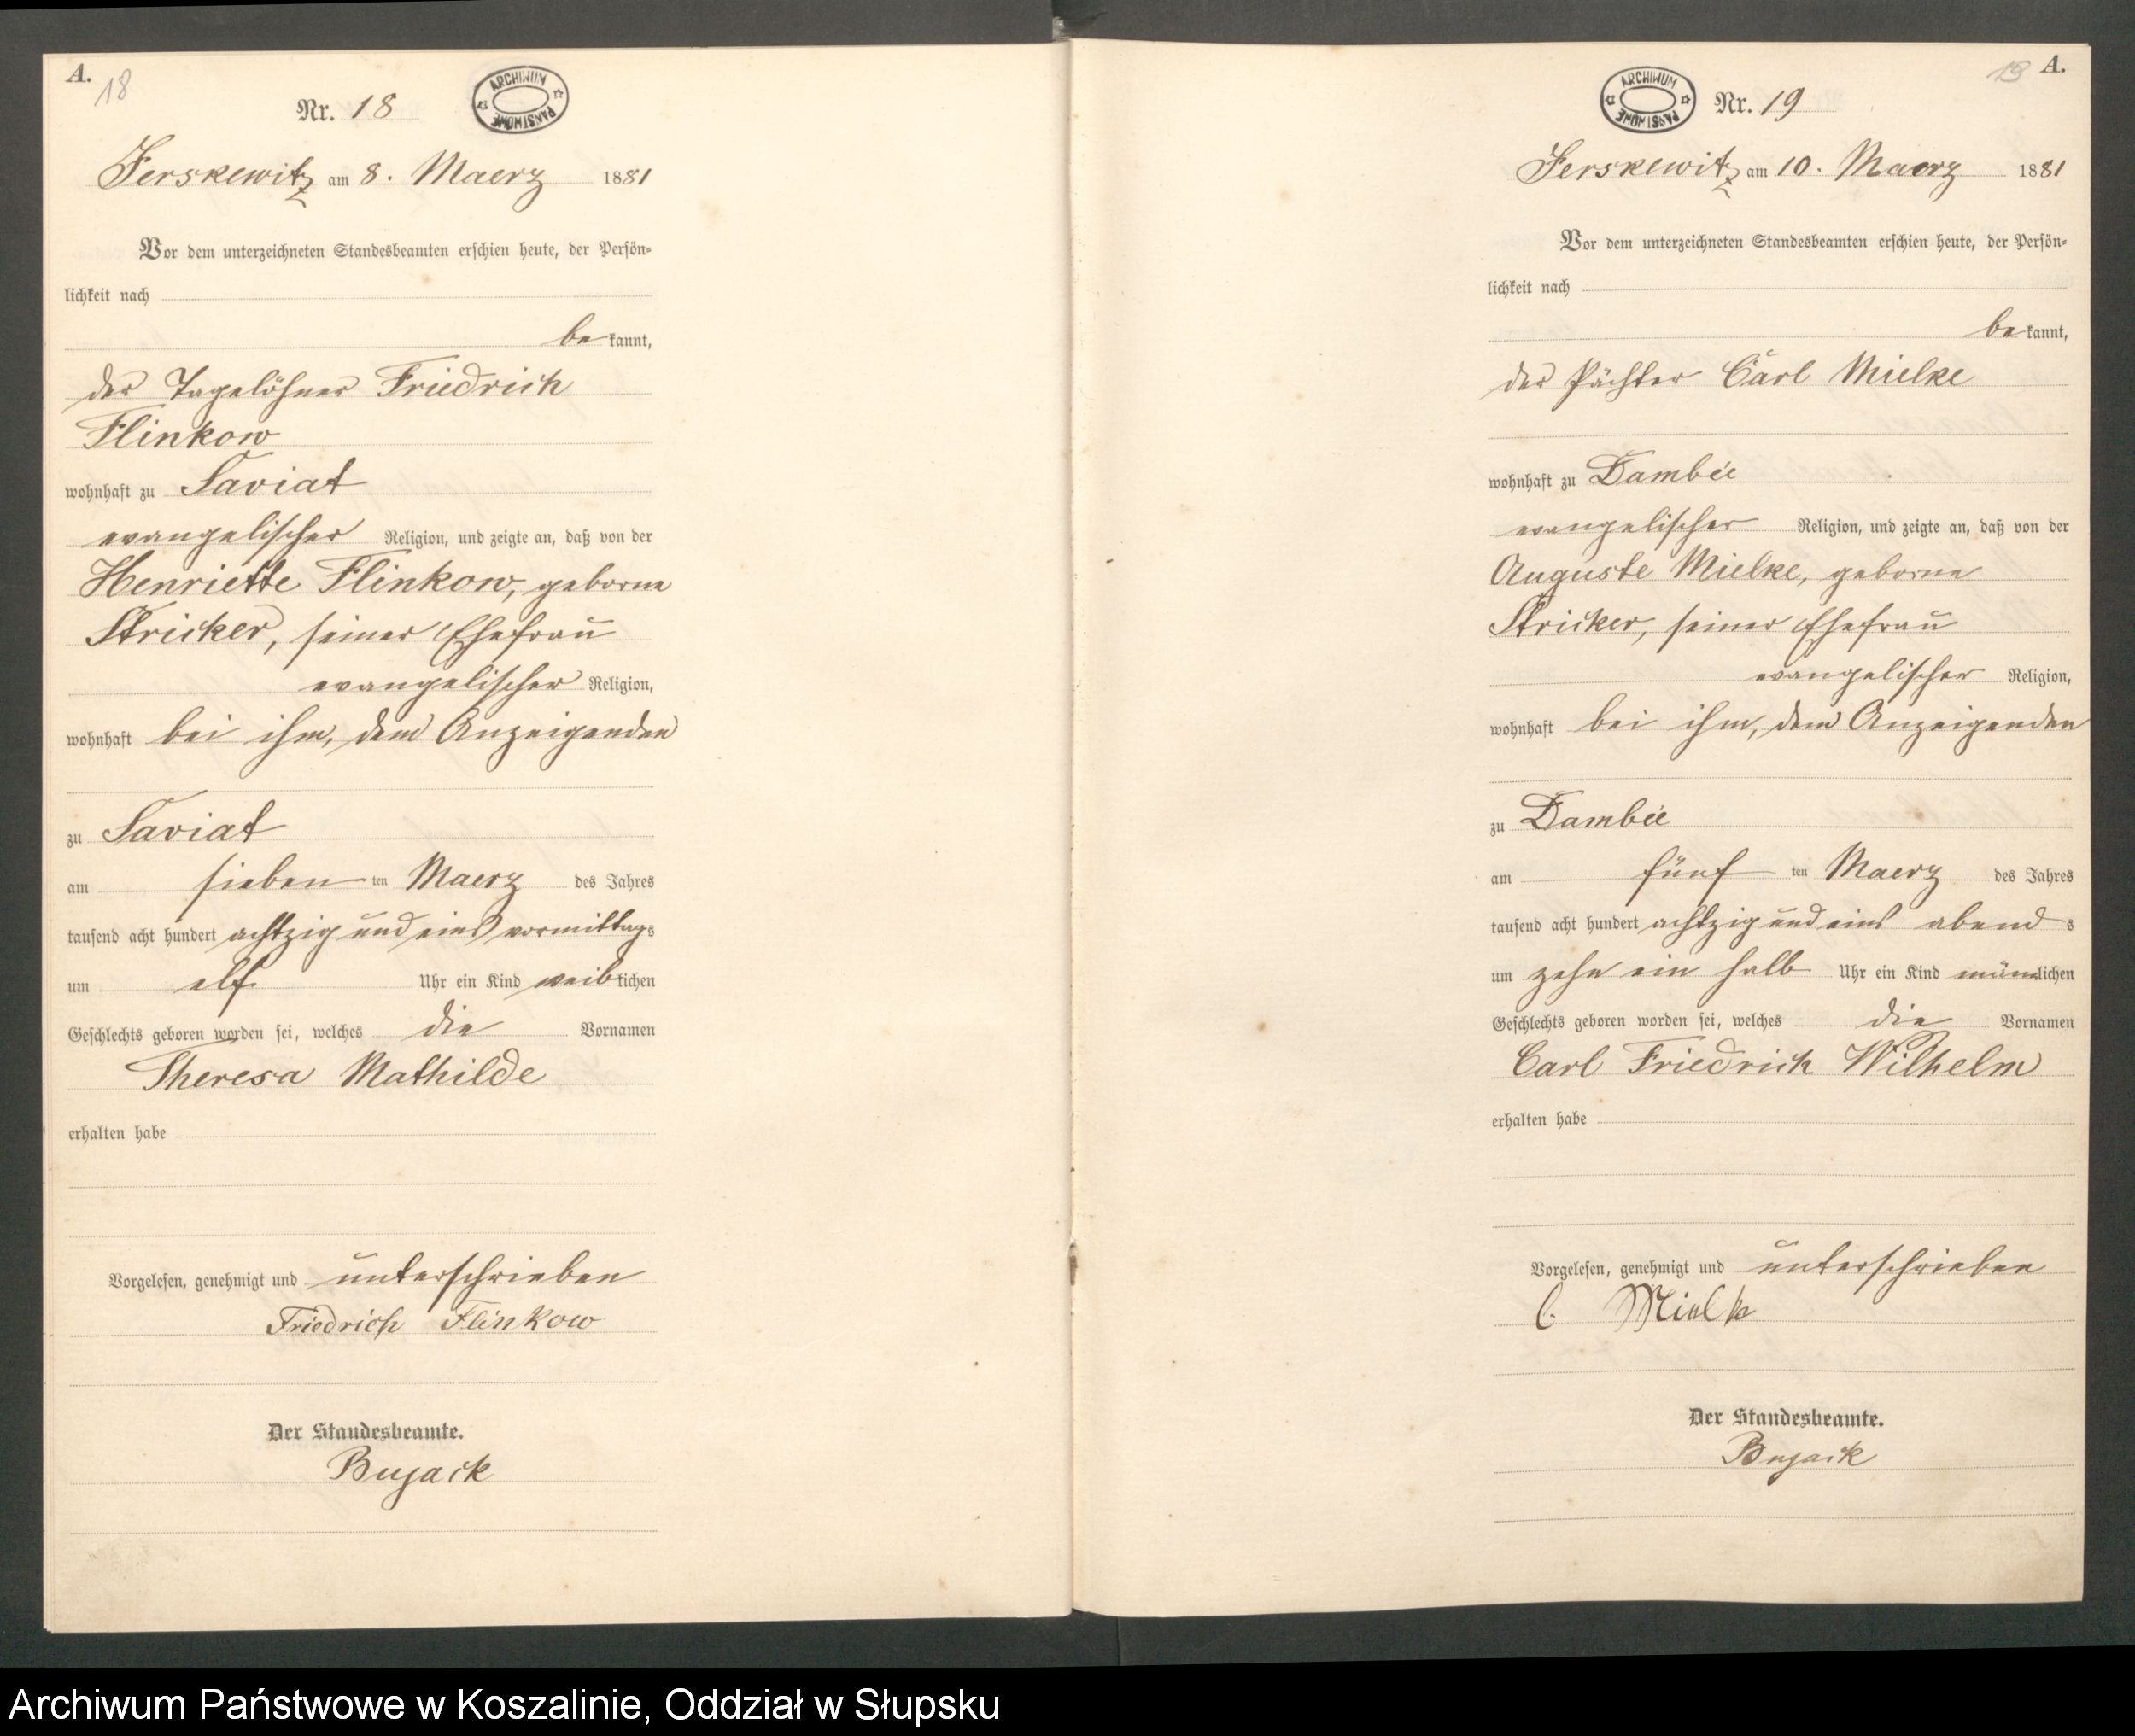 A.
18
Nr. 18
ARCHIWUM PAŃSTWOWE
Jerskewitz am 8. Maerz 1881
Vor dem unterzeichneten Standesbeamten erschien heute, der Persön-
lichkeit nach
be kannt,
der Tagelöhner Friedrich
Flinkow
wohnhaft zu Saviat
evangelischer Religion, und zeigte an, daß von der
Henriette Flinkow, geborne
Stricker, seiner Ehefrau
evangelischer Religion,
wohnhaft bei ihm, dem Anzeigenden
zu Saviat
am sieben ten Maerz des Jahres
tausend acht hundert achtzig und eins vormittags
um elf Uhr ein Kind weiblichen
Geschlechts geboren worden sei, welches die Vornamen
Theresa Mathilde
erhalten habe
Vorgelesen, genehmigt und unterschrieben
Friedrich Flinkow
Der Standesbeamte.
Bujack
19 A.
ARCHIWUM PAŃSTWOWE
Nr. 19
Jerskewitz am 10. Maerz 1881
Vor dem unterzeichneten Standesbeamten erschien heute, der Persön-
lichkeit nach
be kannt,
der Pächter Carl Mielke
wohnhaft zu Dambée
evangelischer Religion, und zeigte an, daß von der
Auguste Mielke, geborne
Stricker, seiner Ehefrau
evangelischer Religion,
wohnhaft bei ihm, dem Anzeigenden
zu Dambée
am fünf ten Maerz des Jahres
tausend acht hundert achtzig und eins abend s
um zehn ein halb Uhr ein Kind männlichen
Geschlechts geboren worden sei, welches die Vornamen
Carl Friedrich Wilhelm
erhalten habe
Vorgelesen, genehmigt und unterschrieben
C. Mielke
Der Standesbeamte.
Bujack
Archiwum Państwowe w Koszalinie, Oddział w Słupsku